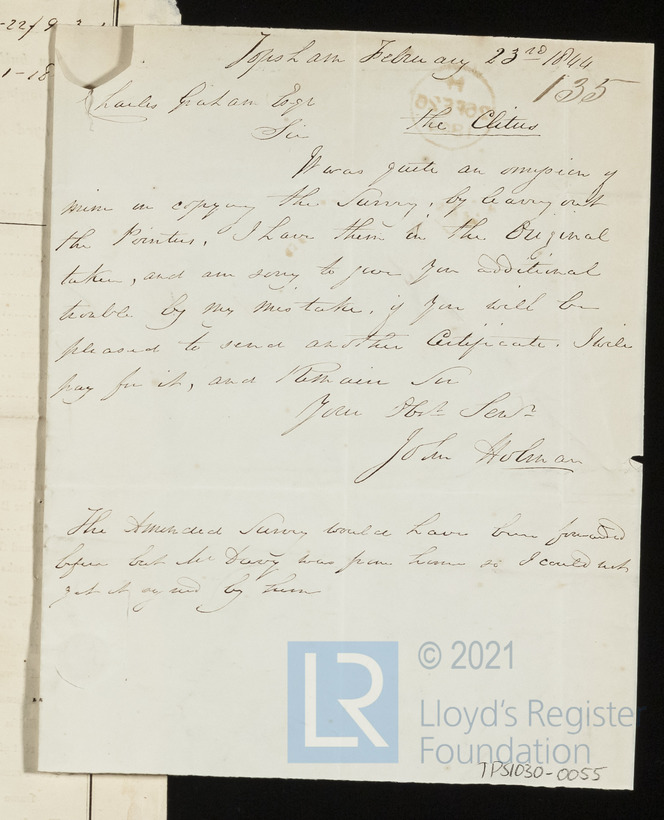 Topsham February 23rd 1844
135
Charles Graham Esqr
Sir
The Clitus
It was quite an omission of
mine in copying the Survey, by leaving out
the Pointers, I have them in the Original
taken, and am sorry to give you additional
trouble by my mistake, if you will be
pleased to send another Certificate. I will
pay for it, and Remain Sir
Your Obt. Servt
John Holman
The Amended Survey would have been forwarded
before but Mr Davy was from home so I could not
get it signed by them
LR
© 2021
Lloyd's Register
Foundation
TPS1030-0055